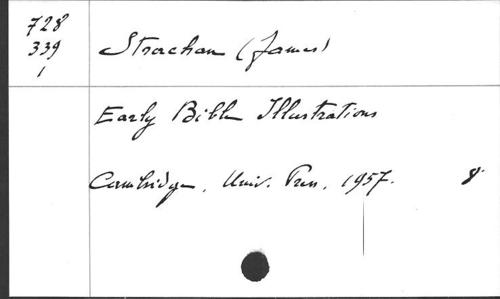 728
339
1
Strachan (James)
Early Bible Illustrations
Cambridge, Univ. Press, 1957. 8°